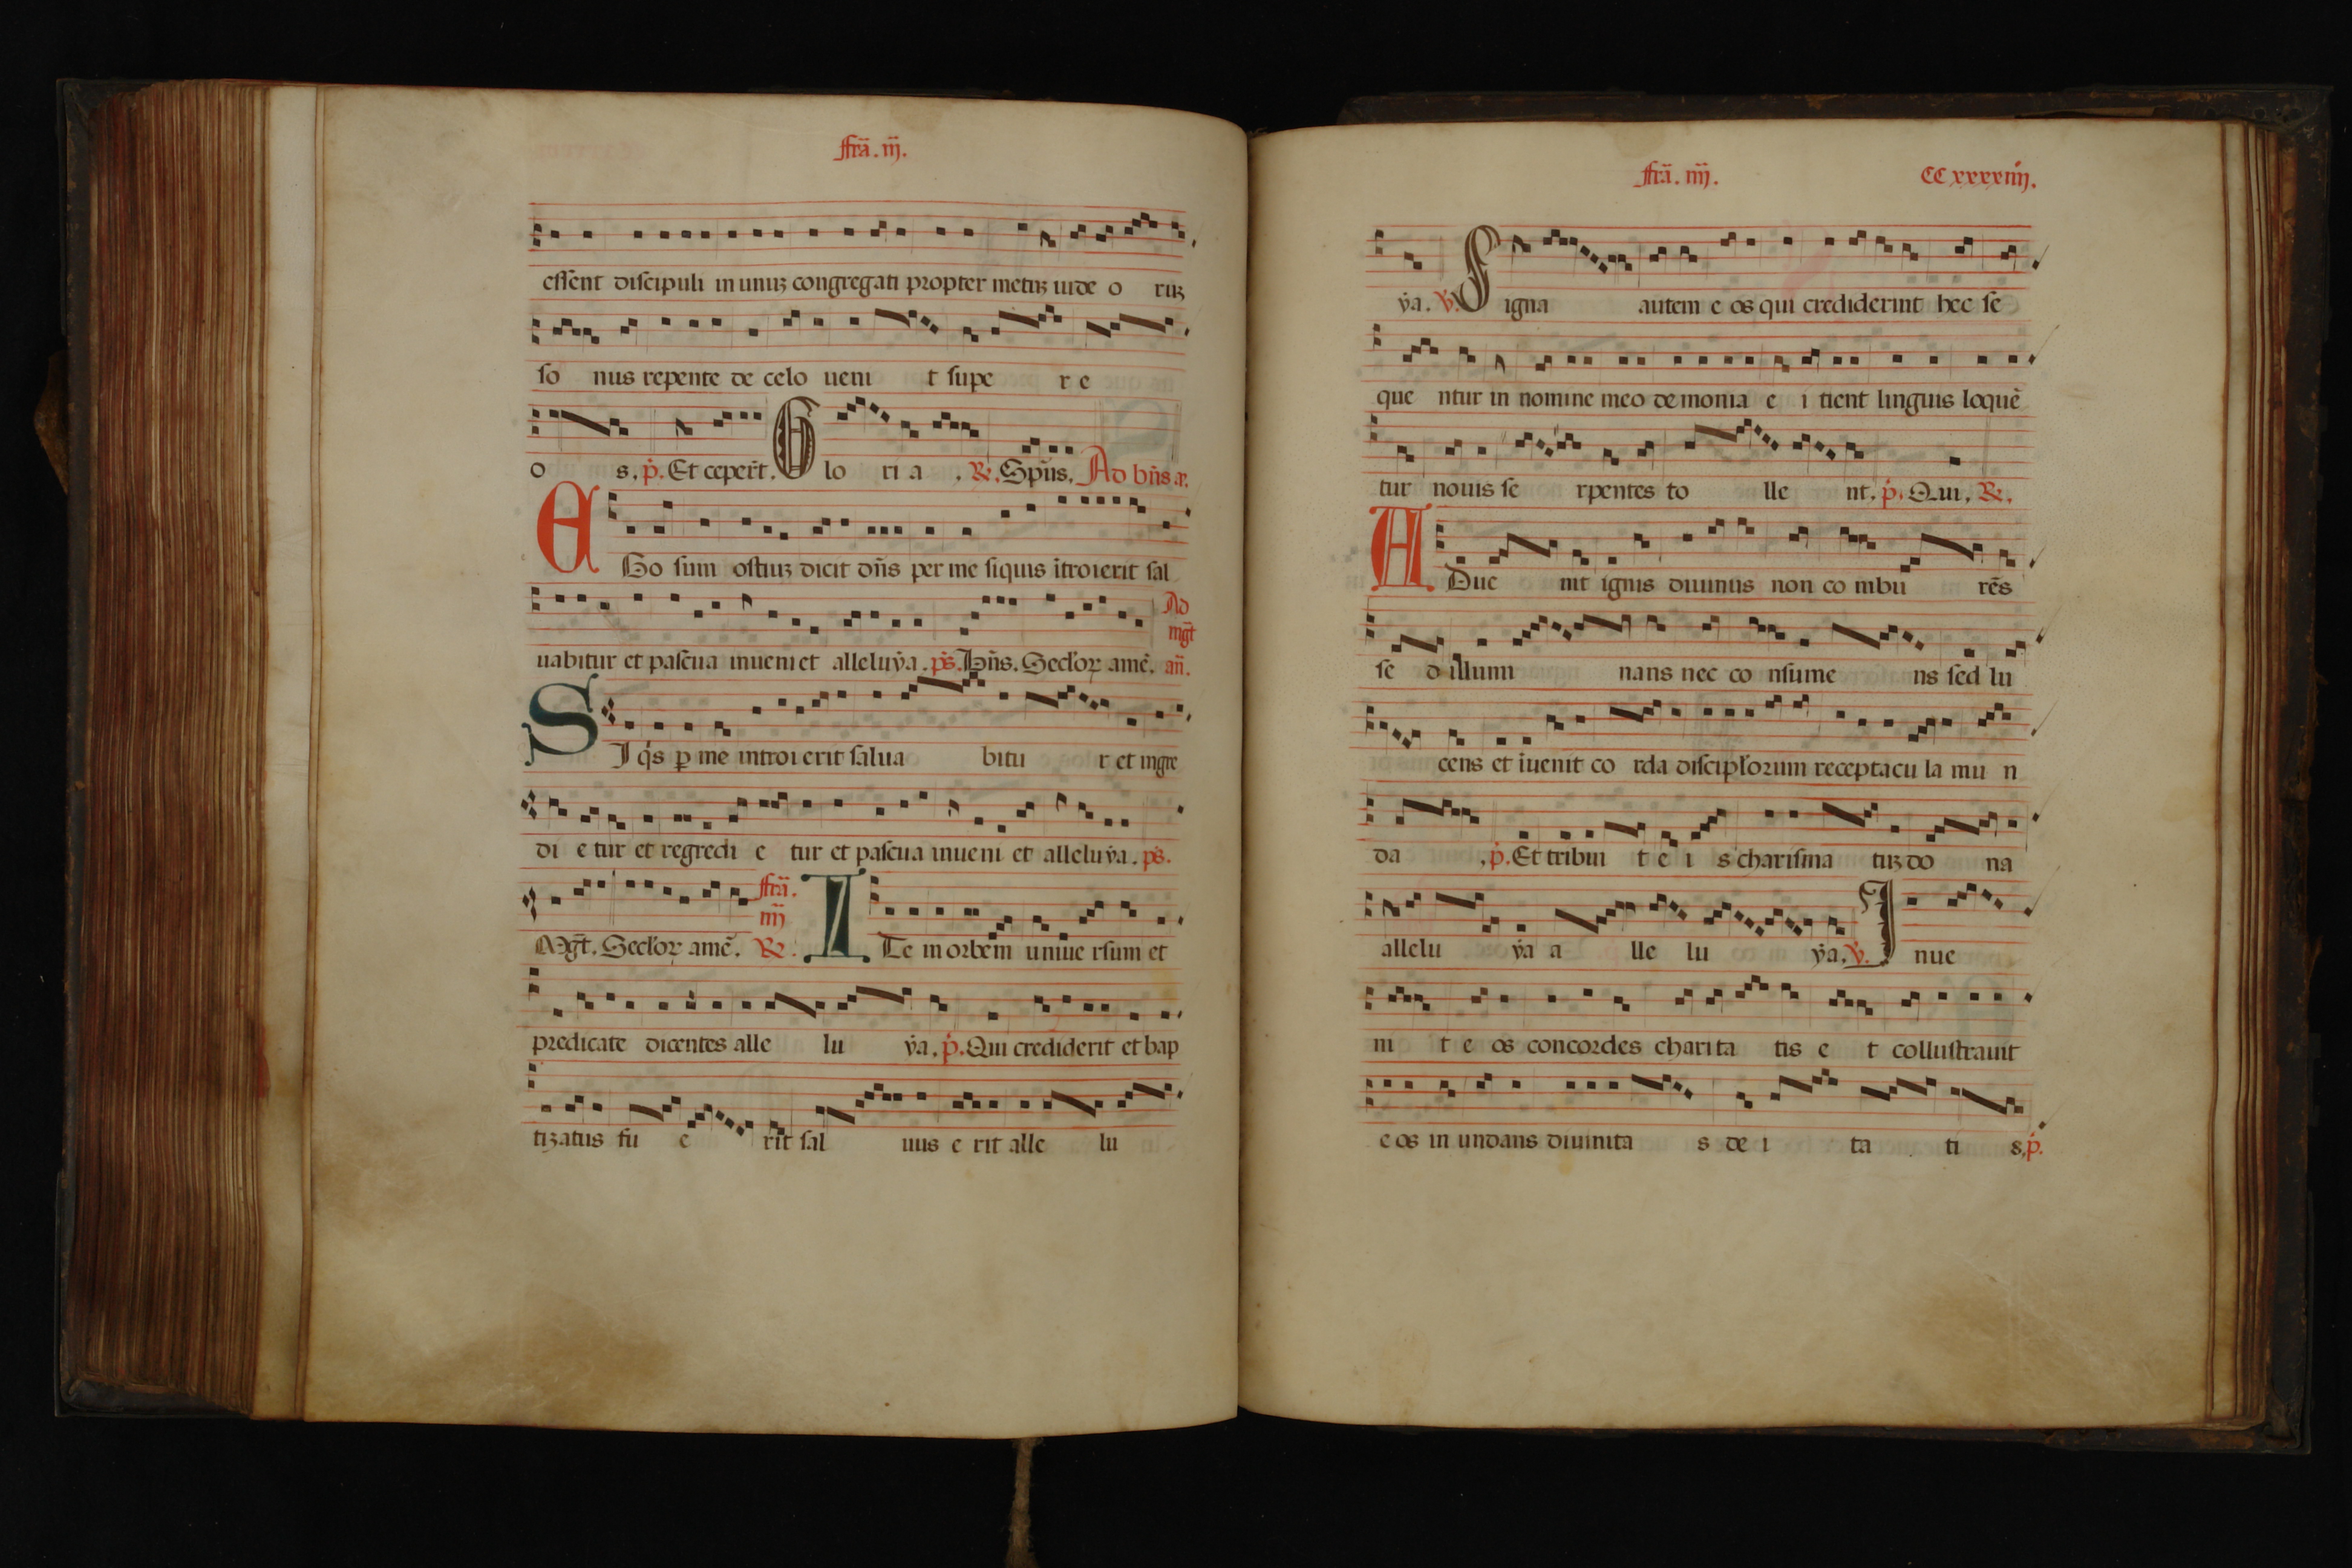 ffrã. iij.
essent discipuli in unuʒ congregati propter metuʒ iude o ruʒ
so nus repente de celo ueni t supe r e
o s. p̃. Et ceper̃t. Glo ri a . ℟. Sp̃us. Ad bñs ā.
EGo sum ostiuʒ dicit dñs per me siquis ĩtroierit sal
uabitur et pascua inueniet alleluẏa. p̃s. Bñs. Secl'oꝝ amẽ. Ad mg̃t añ.
SI q́s ꝑ me introierit salua bitu r et ingre
di e tur et regredi e tur et pascua inueni et alleluẏa. p̃s.
Mg̃t. Secl'oꝝ amẽ. ffrã. iiij ℟. ITe in orbem uniue rsum et
predicate dicentes alle lu ẏa. p̃. Qui crediderit et bap
tizatus fu e rit sal uus e rit alle lu
ffrã. iiij. CCxxxxiiij.
ẏa. ℣. Signa autem e os qui crediderint hec se
que ntur in nomine meo demonia e i cient linguis loquẽ
tur nouis se rpentes to lle nt. p̃. Qui. ℟.
ADue nit ignis diuinus non co mbu rẽs
se d illumi nans nec co nsume ns sed lu
cens et iuenit co rda discipl'orum receptacu la mu n
da . p̃. Et tribui t e i s charisma tuʒ do na
allelu ẏa a lle lu ẏa. ℣. Inue
ni t e os concordes charita tis e t collustrauit
e os in undans diuinita s de i ta ti s. p̃.